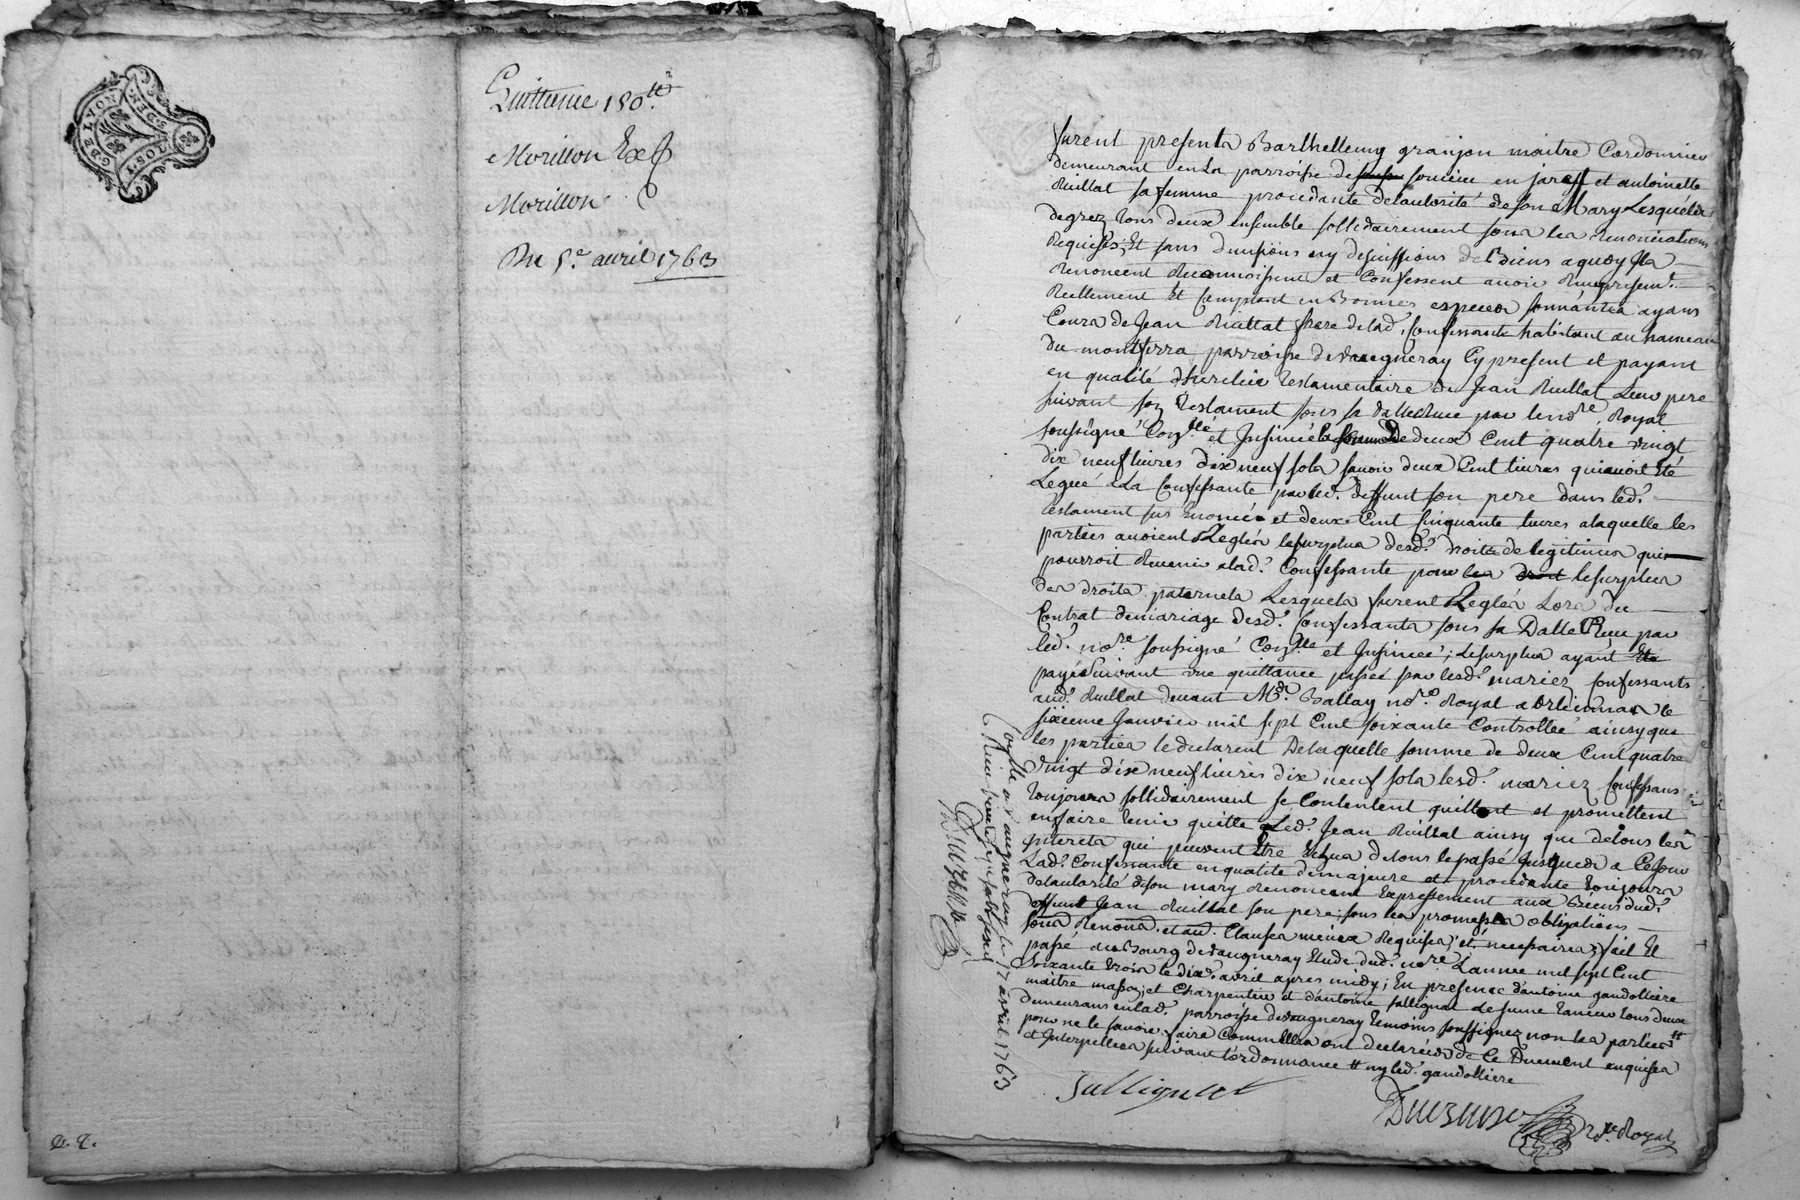 G DE LYON
DEN.
1 SOL 8
Quittance 150.ᵗᵗ
Morillon Ex
Morillon
Du 5.ᵉ avril 1763
D. Q.
furent presents Barthellemy granjon maitre Cordonnier
demeurant en la parroisse de soucieu en jarest et antoinette
Ruillat sa femme procedante de lautorité de son Mary Lesquels
degrez tous deux ensemble sollidairement sous les Renonciations
Requises, Et sans divisions ny discussions de Biens a quoy Ils
Renoncent Reconnoissent et Confessent avoir Reçu presentᵗ.
Reellement Et Comptant en Bonnes especes sonnantes ayans
Cours de Jean Ruillat frere de lad. Confessante habitant au hameau
du montferra parroisse de vaugneray Cy present et payant
en qualité dheritier testamentaire de Jean Ruillat Leur pere
suivant son testament sous sa datte Recue par le noʳᵉ. Royal
soussigné Conᵗˡˡᵉ et Insinué la somme de deux Cent quatre vingt
dix neuf livres dix neuf sols savoir deux Cent livres qui avoit Eté
Legué ala Confessante par led. deffunt son pere dans led.
testament sus Enoncé et deux Cent Cinquante livres alaquelle les
parties avoient Reglés le surplus desd. droits de legitimes qui
pourroit Revenir alad. Confessante pour les droit le surplus
des droits paternels Lesquels furent Reglés Lors du
Contrat de mariage desd. Confessants sous sa Datte Reçu par
led. noʳᵉ. soussigné Conᵗˡˡᵉ et Insinué; le surplus ayant Eté
payé suivant une quittance passée par lesd. mariez Confessants
aud. Ruillat devant Mᵉ. Ballay noʳᵉ Royal a Orliennas le
sixieme Janvier mil sept Cent soixante Controllée ainsy que
les parties le declarent De laquelle somme de deux Cent quatre
Vingt dix neuf livres dix neuf sols lesd. mariez Confessans
toujours sollidairement se Contentent quittent et promettent
en faire tenir quitte Led. Jean Ruillat ainsy que de tous les
Interets qui peuvent être Echus de tous le passé jusques a Ce jour
Lad. Confessante en qualité de majeure et procedante toujours
de lautorité de son mary Renoncent Expressement aux Biens dud.
deffunt Jean Ruillat son pere; sous les promesses obligations
soud Renond. et aud. Clauses mêmes Requises et necessaires; fait Et
passé au Bourg de vaugneray Etude dud. noʳᵉ. Lannee mil sept Cent
soixante trois le dix. avril apres midy; En presence dantoine gandolliere
maitre masson, et Charpentier et dantoine sallignat Le jeune tanneur tous deux
demeurans en lad. parroisse de vaugneray temoins soussignez non les parties #
pour ne le savoir faire Comme Elles ont declarées de Ce Duement enquises
et Interpellées suivant lordonnance # ny led. gandolliere
Sallignat
noʳᵉ. Royal
Conᵗˡˡᵉ a vaugneray le 17 avril 1763